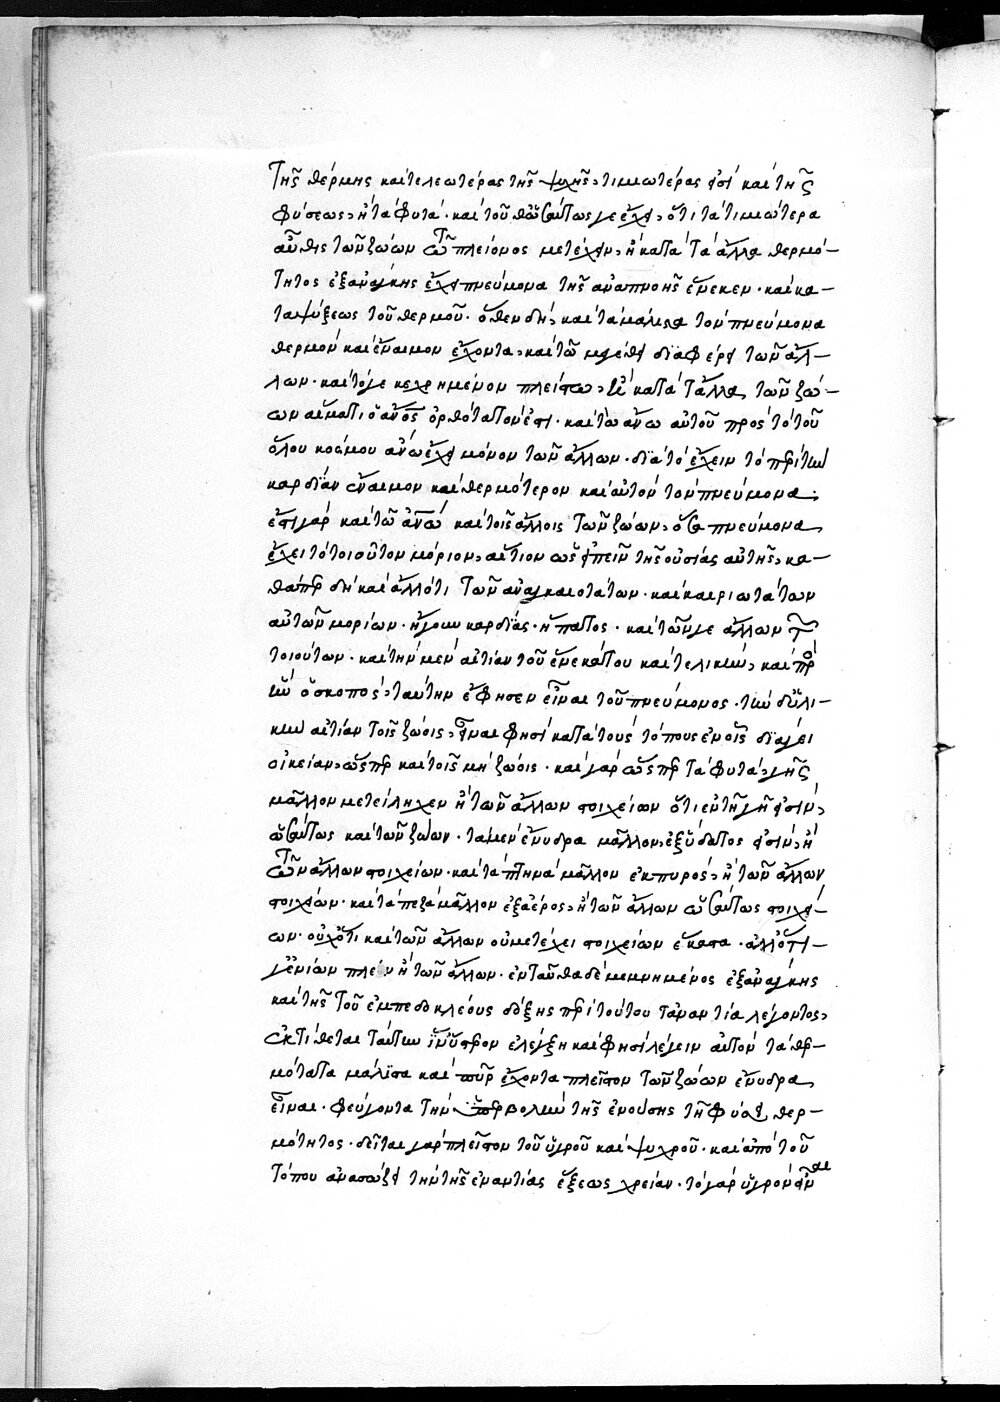 τῆς θέρμης καὶ τελεωτέρας τῆς ψυχῆς, τιμιωτέρας φησὶ καὶ τῆς
φύσεως, ἢ τὰ φυτά· καὶ τοῦθ' οὕτως γε ἔχει, ὅτι τὰ τιμιώτερα
αὖθις τῶν ζώων πλείονος μετέχειν, ἢ κατὰ τὰ ἄλλα θερμό-
τητος ἐξανάγκης ἔχει πνεύμονα τῆς ἀναπνοῆς ἕνεκεν· καὶ κα-
ταψύξεως τοῦ θερμοῦ· ὅθεν δὴ, καὶ τὰ μάλιστα τὸν πνεύμονα
θερμὸν καὶ ἔναιμον ἔχοντα, καὶ τῶ μεγέθει διαφέρει τῶν ἄλ-
λων· καὶ τό γε κεχρημένον πλείστω, ἢ κατὰ τἄλλα τῶν ζώ-
ων αἵματι ὁ ἄνος ὀρθότατόν ἐστι· καὶ τὸ ἄνω αὐτοῦ πρὸς τὸ τοῦ
ὅλου κόσμου ἄνω ἔχει μόνον τῶν ἄλλων· διὰ τὸ ἔχειν τὸ περὶ τὴν
καρδίαν ἔναιμον καὶ θερμότερον καὶ αὐτὸν τὸν πνεύμονα·
ἔστι γὰρ καὶ τῶ ἀνω καὶ τοῖς ἄλλοις τῶν ζώων, ὅσα πνεύμονα
ἔχει τὸ τοιοῦτον μόριον, αἴτιον ὡς εἰπεῖν τῆς οὐσίας αὐτῆς, κα-
θάπερ δὴ καὶ ἄλλό τι τῶν ἀναγκαιοτάτων· καὶ καιριωτάτων
αὐτῶν μορίων· ἤγουν καρδίας· ἥπατος· καὶ τῶν γε ἄλλων τῶν
τοιούτων· καὶ τὴν μὲν αἰτίαν τοῦ ἕνεκά του καὶ τελικὴν, καὶ περὶ
ἣν ὁ σκοπὸς, ταύτην ἔφησεν εἶναι τοῦ πνεύμονος· τὴν δ' ὑλι-
κὴν αἰτίαν τοῖς ζώοις, εἶναι φησὶ κατὰ τοὺς τόπους ἐν οἷς διάγει
οἰκείαν, ὥσπερ καὶ τοῖς μὴ ζώοις· καὶ γὰρ ὥσπερ τὰ φυτὰ, γῆς
μᾶλλον μετείληχεν ἢ τῶν ἄλλων στοιχείων ὅτι ἐν τῆ γῆ εἰσὶν,
οὕτως καὶ τῶν ζώων· τὰ μὲν ἔνυδρα μᾶλλον, ἐξ ὕδατος εἰσὶν, ἢ
τῶν ἄλλων στοιχείων· καὶ τὰ πτηνὰ μᾶλλον ἐκ πυρὸς, ἢ τῶν ἄλλων
στοιχείων· καὶ τὰ πεζὰ μᾶλλον ἐξ ἀέρος, ἢ τῶν ἄλλων οὕτως στοιχεί-
ων· οὐχ ὅτι καὶ τῶν ἄλλων οὐ μετέχει στοιχείων ἕκαστα· ἀλλ' ὅτι
γ' ἐνίων πλέον ἢ τῶν ἄλλων· ἐνταῦθα δὲ μεμνημένος ἐξανάγκης
καὶ τῆς τοῦ ἐμπεδοκλέους δόξης περὶ τούτου τἀναντία λέγοντος,
ἐκτίθεται ταύτην ἵν' ὕστερον ἐλέγξη καὶ φησὶ λέγειν αὐτὸν τὰ θερ-
μότατα μάλιστα καὶ πῦρ ἔχοντα πλεῖστον τῶν ζώων ἔνυδρα
εἶναι· φεύγοντα τὴν ὑπερβολὴν τῆς ἐνούσης τῆ φύσει θερ-
μότητος· δεῖται γὰρ πλεῖστον τοῦ ὑγροῦ καὶ ψυχροῦ· καὶ ἀπὸ τοῦ
τόπου ἀνασώζει τὴν τῆς ἐναντίας ἕξεως χρείαν· τὸ γὰρ ὑγρὸν εἶναι